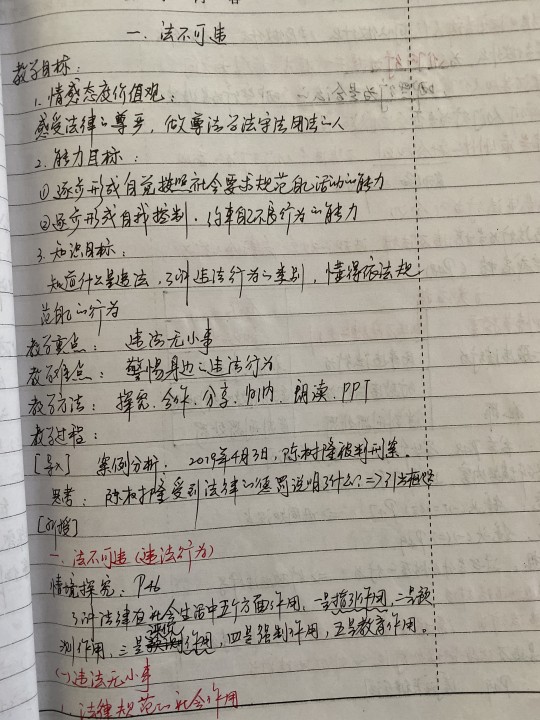 一、法不可违
教学目标：
1.情感态度价值观：
感受法律的尊严，做尊法学法守法用法的人
2.能力目标：
①逐步形成自觉按照社会要求规范自己活动的能力
②逐步形成自我控制、约束自己不良行为的能力
3.知识目标：
知道什么是违法，了解违法行为的类别，懂得依法规
范自己的行为
教学重点：违法无小事
教学难点：警惕身边的违法行为
教学方法：探究、合作、分享、归纳、朗读、PPT
教学过程：
[导入] 案例分析：2019年4月3日，陈权隆被判刑案。
思考：陈权隆受到法律的惩罚说明了什么？=>引出
[新授]
一、法不可违（违法行为）
情境探究：P46
了解法律在社会生活中五个方面作用，一是指引作用，二是预
测作用，三是评价作用，四是强制作用，五是教育作用。
(一)违法无小事
1.法律规范的社会作用